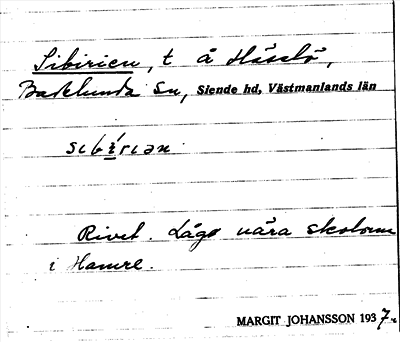 Sibirien, t å Hässlö,
Badelunda Sn, Siende hd, Västmanlands län
sıbı́rıən
Rivet. Låg nära skolorna
i Hamre.
MARGIT JOHANSSON 1937.